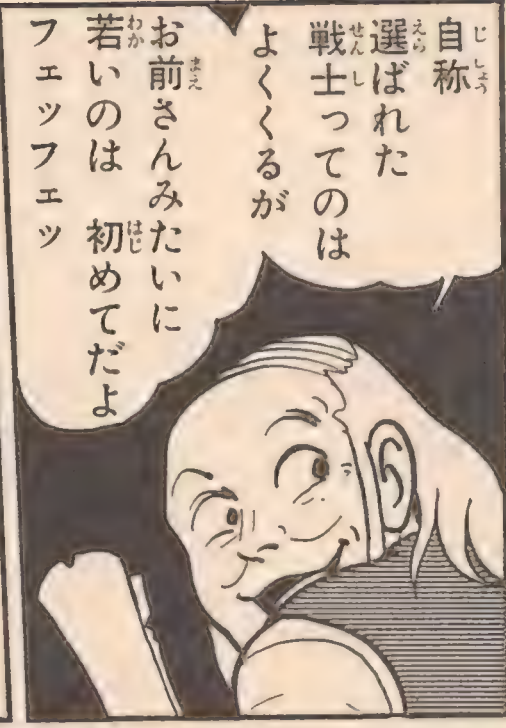 自称
選ばれた
戦士ってのは
よくくるが
お前さんみたいに
若いのは　初めてだよ
フェッフェッ